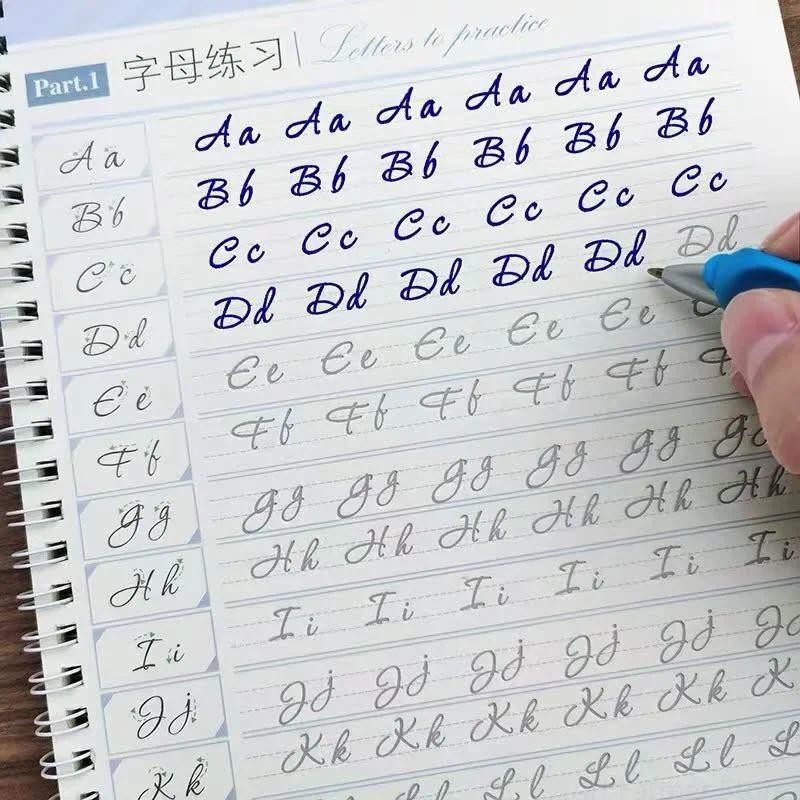 Part.1 字母练习 Letters to practice
Aa Aa Aa Aa Aa Aa Aa
Bb Bb Bb Bb Bb Bb Bb
Cc Cc Cc Cc Cc Cc Cc
Dd Dd Dd Dd Dd Dd Dd
Ee Ee Ee Ee Ee Ee
Ff Ff Ff Ff Ff Ff
Gg Gg Gg Gg Gg Gg Gg
Hh Hh Hh Hh Hh Hh Hh
Ii Ii Ii Ii Ii Ii Ii
Jj Jj Jj Jj Jj Jj J
Kk Kk Kk Kk Kk Kk K
Ll Ll Ll L